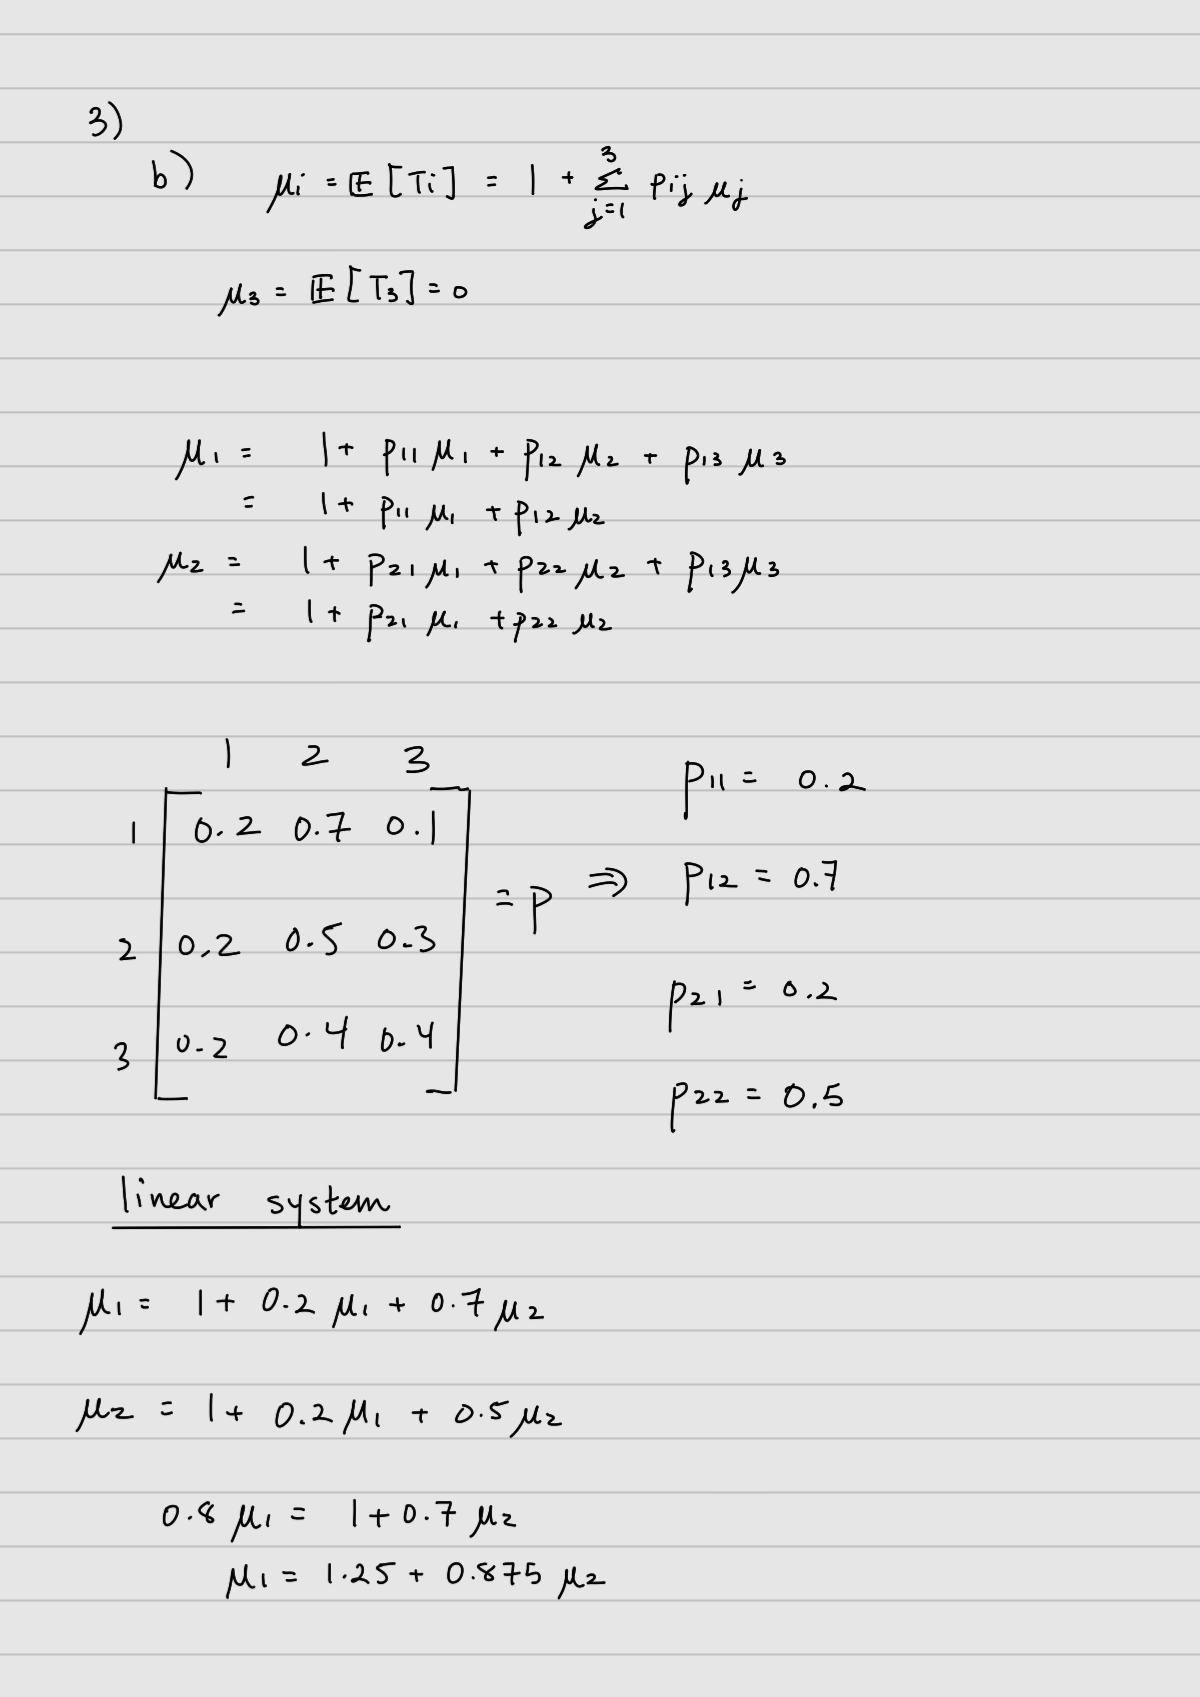 3)
b) μi = 𝔼 [Ti] = 1 + 3∑j=1 pij μj
μ3 = 𝔼 [T3] = 0
μ1 = 1 + p11 μ1 + p12 μ2 + p13 μ3
= 1 + p11 μ1 + p12 μ2
μ2 = 1 + p21 μ1 + p22 μ2 + p13 μ3
= 1 + p21 μ1 + p22 μ2
1 2 3
1 [ 0.2 0.7 0.1
2 0.2 0.5 0.3
3 0.2 0.4 0.4 ] = P ⇒
p11 = 0.2
p12 = 0.7
p21 = 0.2
p22 = 0.5
linear system
μ1 = 1 + 0.2 μ1 + 0.7 μ2
μ2 = 1 + 0.2 μ1 + 0.5 μ2
0.8 μ1 = 1 + 0.7 μ2
μ1 = 1.25 + 0.875 μ2